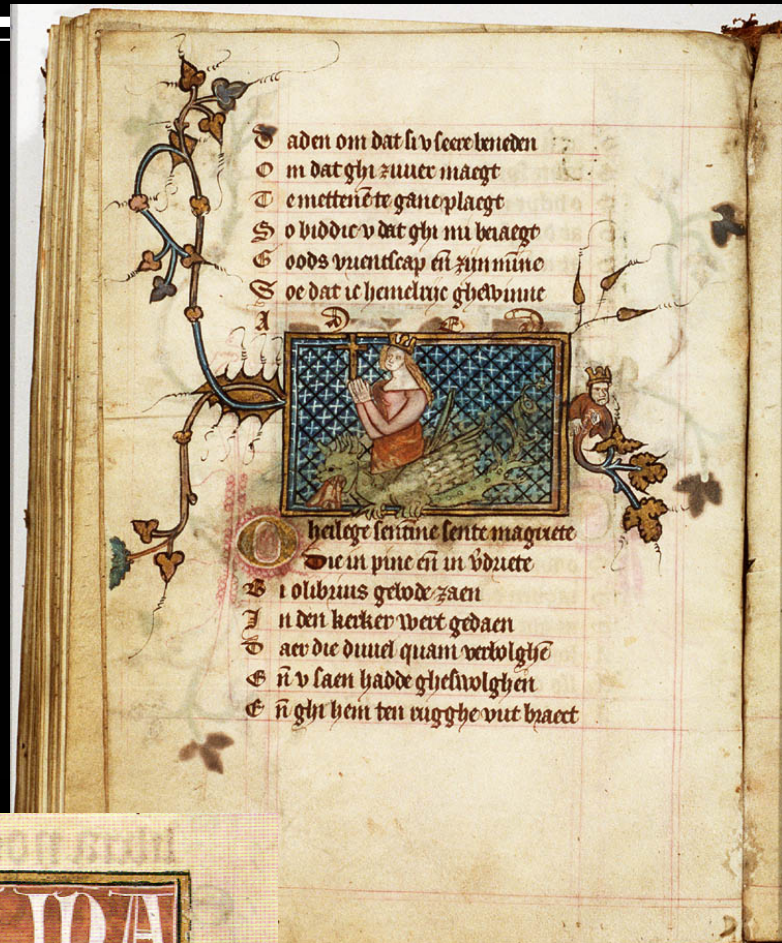 D aden om dat si v seere beneden
O m dat ghi zuuer maegt
T e mettenē te gane plaegt
S o biddic v dat ghi mi beiaegt
G oods vrientscap eñ zijn minne
S oe dat ic hemelrijc ghewinne
A
O heilege fentine sente magriete
Die in pine eñ in v̄driete
B i olibrius gebode zaen
I n den kerker wert gedaen
D aer die duuel quam verbolghē
E ñ v saen hadde gheswolghen
E ñ ghi hem ten rugghe vut braect